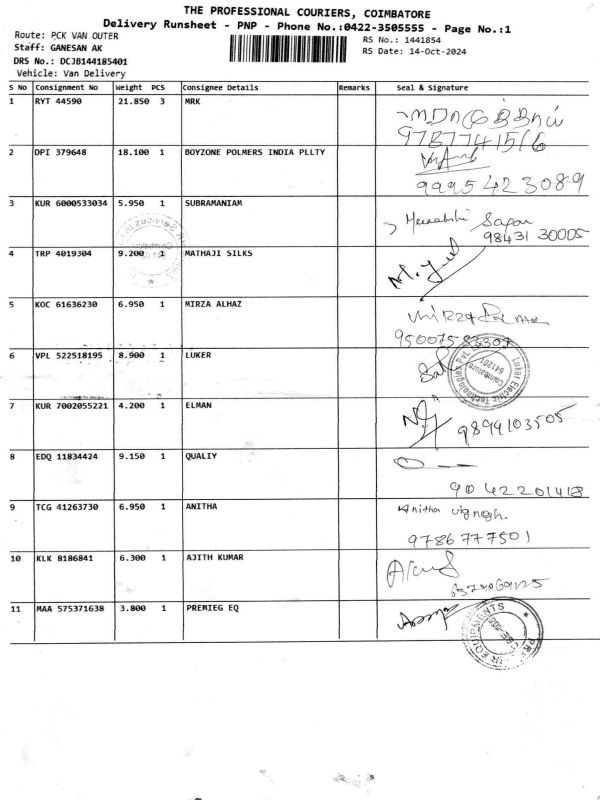 THE PROFESSIONAL COURIERS, COIMBATORE
Delivery Runsheet - PNP - Phone No.:0422-3505555 - Page No.:1
Route: PCK VAN OUTER
RS No.: 1441854
Staff: GANESAN AK
RS Date: 14-Oct-2024
DRS No.: DCJB144185401
Vehicle: Van Delivery
S No Consignment No Weight PCS Consignee Details Remarks Seal & Signature
1 RYT 44590 21.850 3 MRK
2 DPI 379648 18.100 1 BOYZONE POLMERS INDIA PLLTY
9995423089
3 KUR 6000533034 5.950 1 SUBRAMANIAM
Meenakshi Sagar
98431 30005
4 TRP 4019304 9.200 1 MATHAJI SILKS
5 KOC 61636230 6.950 1 MIRZA ALHAZ
6 VPL 522518195 8.900 1 LUKER
Lukar Electric Technologies Pvt.
Coimbatore
641201
7 KUR 7002055221 4.200 1 ELMAN
9894103505
8 EDQ 11834424 9.150 1 QUALIY
9042201418
9 TCG 41263730 6.950 1 ANITHA
Anitha vignesh.
9786777501
10 KLK 8186841 6.300 1 AJITH KUMAR
11 MAA 575371638 3.800 1 PREMIEG EQ
EQUIPMENTS